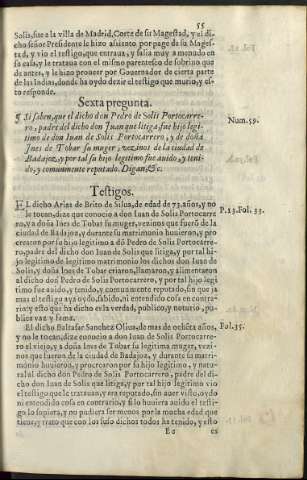 55
Solis, fue a la villa de Madrid, Corte de su Magestad, y el di-
cho señor Presidente le hizo assiento por page de su Mages-
tad, y vio el testigo, que entraua, y salia muy a menudo en
su casa, y le trataua con el mismo parentesco de sobrino que
de antes, y le hizo proueer por Gouernador de cierta parte
de las Indias, donde ha oydo dezir el testigo que murio, y es-
to responde.
Sexta pregunta.
¶ Si saben, que el dicho don Pedro de Solis Portocarre-
ro, padre del dicho don Juan que litiga fue hijo legi-
timo de don Iuan de Solis Portocarrero, y de doña
Ines de Tobar su muger, vezinos de la ciudad de
Badajoz, y por tal su hijo legitimo fue auido, y teni-
do, y comunmente reputado. Digan, &c.
Num. 59.
Testigos.
EL dicho Arias de Brito de Silua, de edad de 73. años, y no
le tocan, dize que conocio a don Iuan de Solis Portocarre
ro, y a doña Ines de Tobar su muger, vezinos que fuerõ de la
ciudad de Badajoz, y durante su matrimonio huuieron, y pro
crearon por su hijo legitimo a dõ Pedro de Solis Portocarre
ro, padre del dicho don Iuan de Solis que litiga, y por tal hi-
jo legitimo de legitimo matrimonio los dichos don Iuan de
Solis, y doña Ines de Tobar criaron, llamaron, y alimentaron
al dicho don Pedro de Solis Portocarrero, y por tal hijo legi
timo fue auido, y tenido, y comunmente reputado, sin que ja
mas el testigo aya oydo, sabido, ni entendido cosa en contra-
rio, y esto que ha dicho es la verdad, publico, y notorio, pu-
blica voz y fama.
P. 23. Fol. 33.
El dicho Baltasar Sanchez Oliua, de mas de ochẽta años,
y no le tocan, dize conocio a don Iuan de Solis Portocarre-
ro el viejo, y a doña Ines de Tobar su legitima muger, vezi-
nos que fueron de la ciudad de Badajoz, y durante su matri-
monio huuieron, y procrearon por su hijo legitimo, y natu-
ral al dicho don Pedro de Solis Portocarrero, padre del di-
cho don Iuan de Solis que litiga, y por tal hijo legitimo vio
el testigo que le tratauan, y era reputado, sin auer visto, oydo
ni entendido cosa en contrario, y si lo huuiera auido el testi-
go lo supiera, y no pudiera ser menos por la mucha edad que
tiene, y trato que con los suso dichos todos ha tenido, y esto
Fol. 35.
Ee es